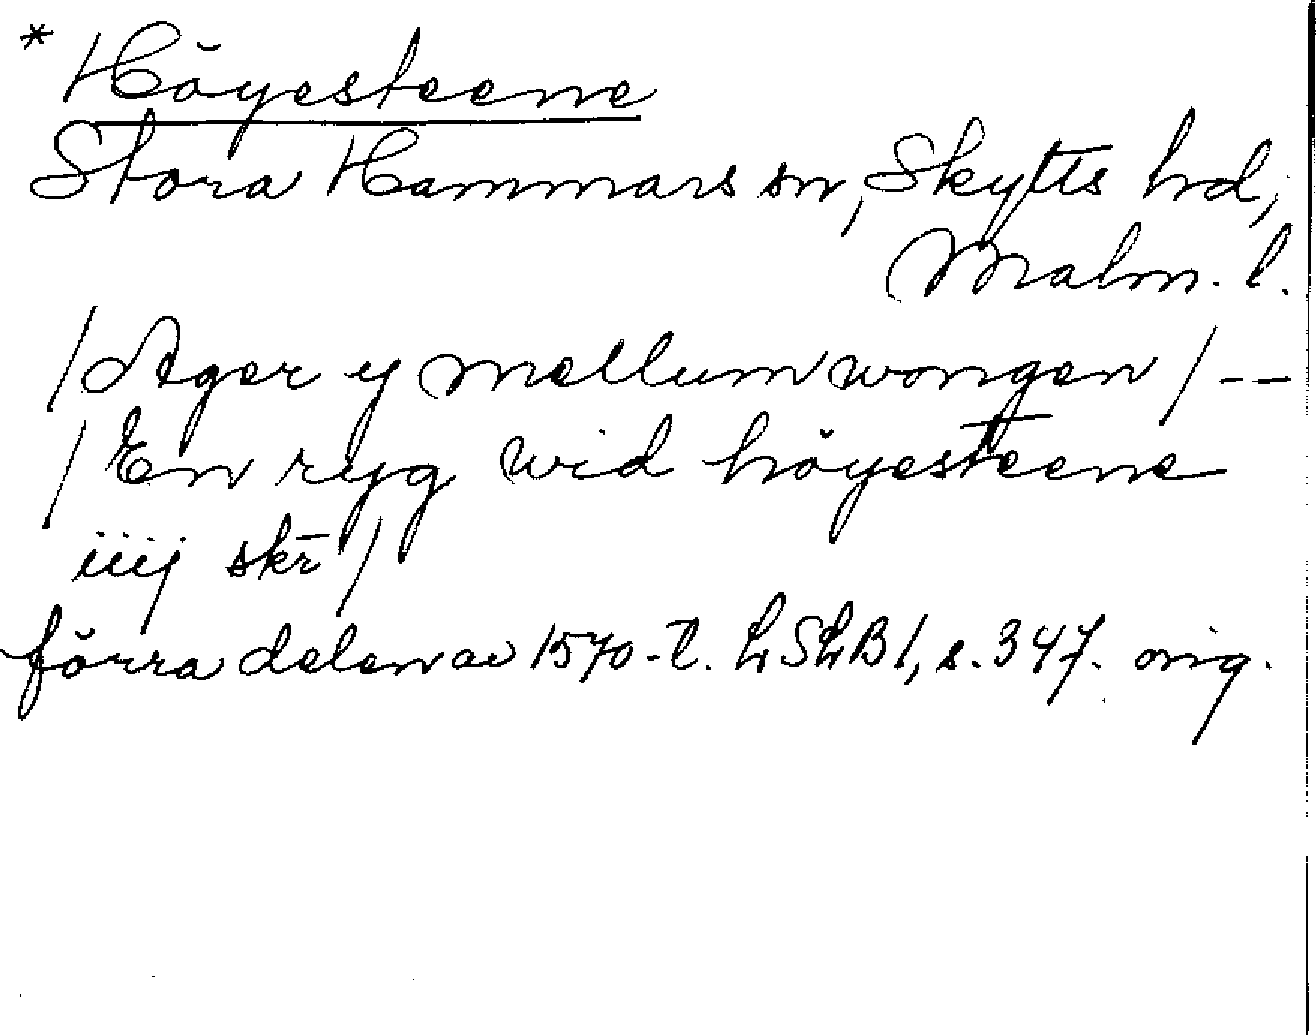 * Höyesteene
Stora Hammars sn, Skytts hd,
Malm. l.
/Ager y mellum wongen/--
/En ryg wid höyesteene
iiij skr̄/
förra delen av 1570-t. LSLB1, s. 347. orig.